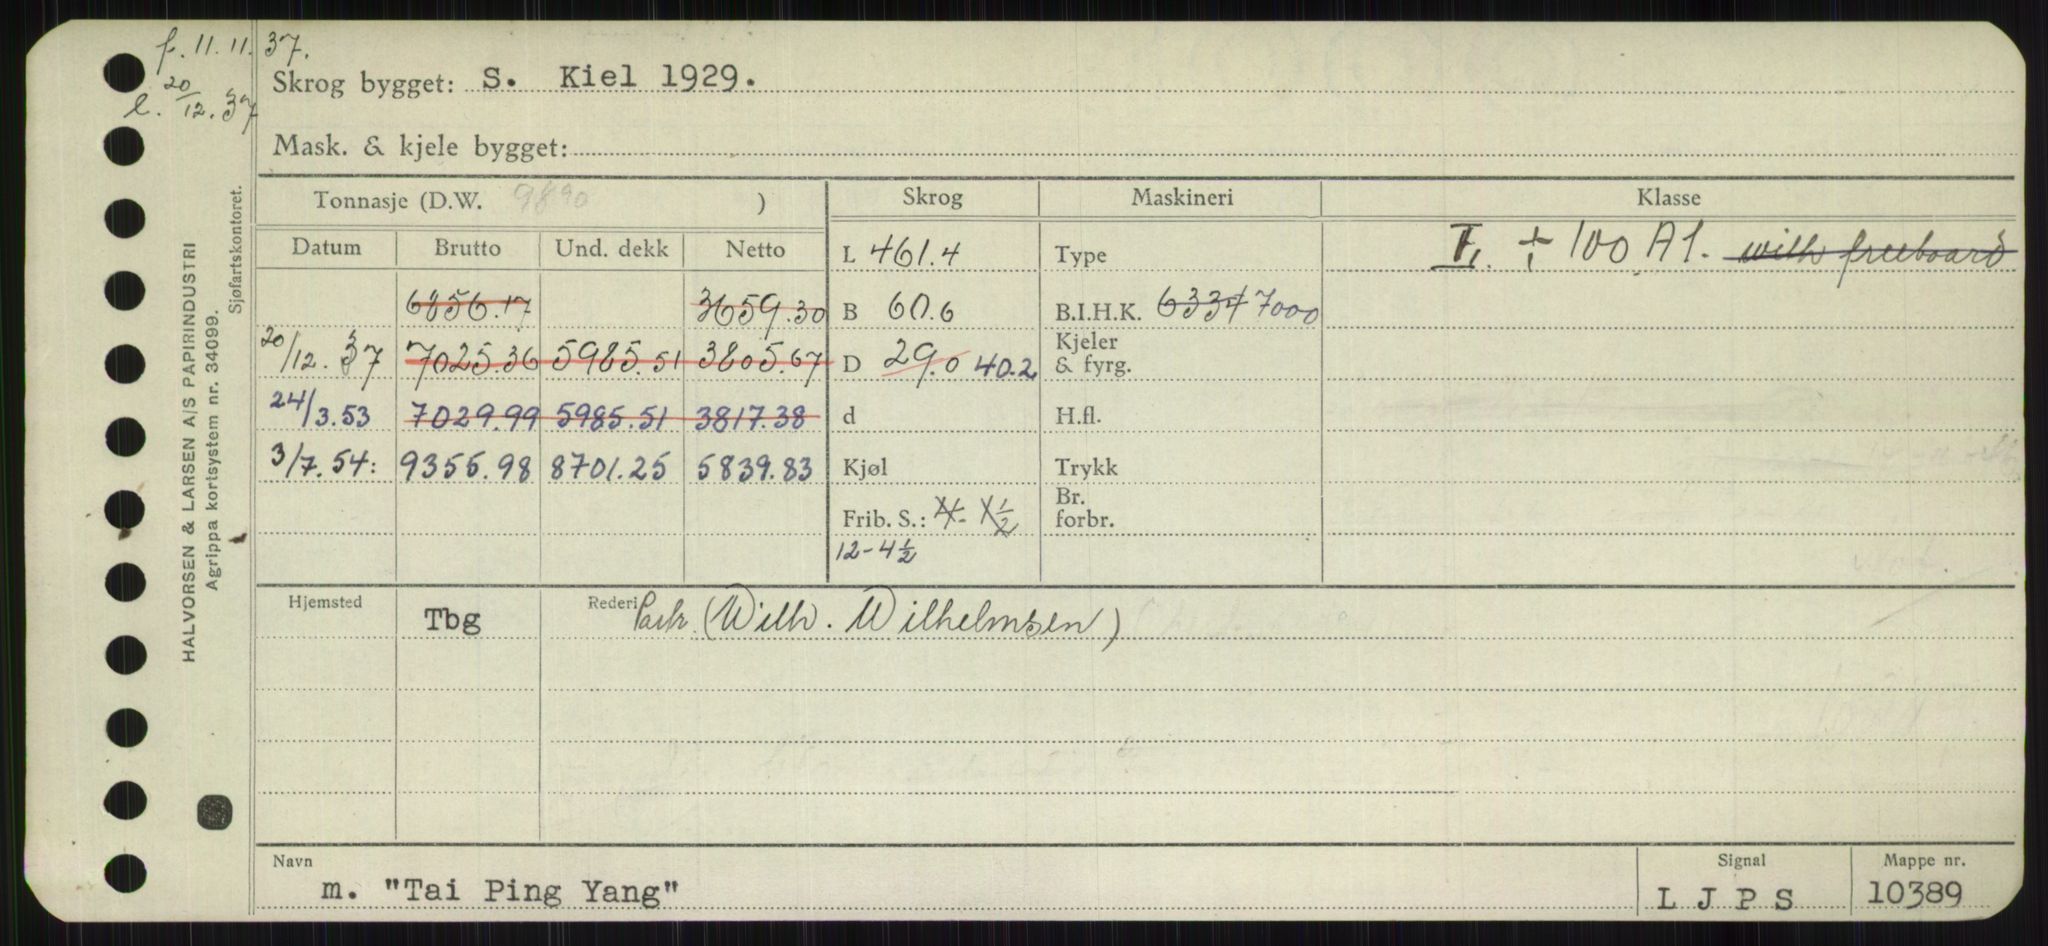 f. 11.11.37.
Skrog bygget: S. Kiel 1929.
l. 20/12.37
Mask. & kjele bygget:
HALVORSEN & LARSEN A/S PAPIRINDUSTRI
Agrippa kortsystem nr. 34099.
Sjøfartskontoret.
Tonnasje (D.W. 9890 ) Skrog Maskineri Klasse
Datum Brutto Und. dekk Netto L 461.4 Type I. ÷ 100 A1. with freeboard
6856.17 3659.30 B 60.6 B.I.H.K. 6334 7000
20/12. 37 7025.36 5985.51 3805.67 D 29.0 40.2 Kjeler & fyrg.
24/3.53 7029.99 5985.51 3817.38 d H.fl.
3/7.54: 9355.98 8701.25 5839.83 Kjøl Trykk
Frib. S.: X½ Br. forbr.
12-4½
Hjemsted Tbg Rederi (Wilh. Wilhelmsen)
Navn Signal Mappe nr.
m. "Tai Ping Yang" L J P S 10389